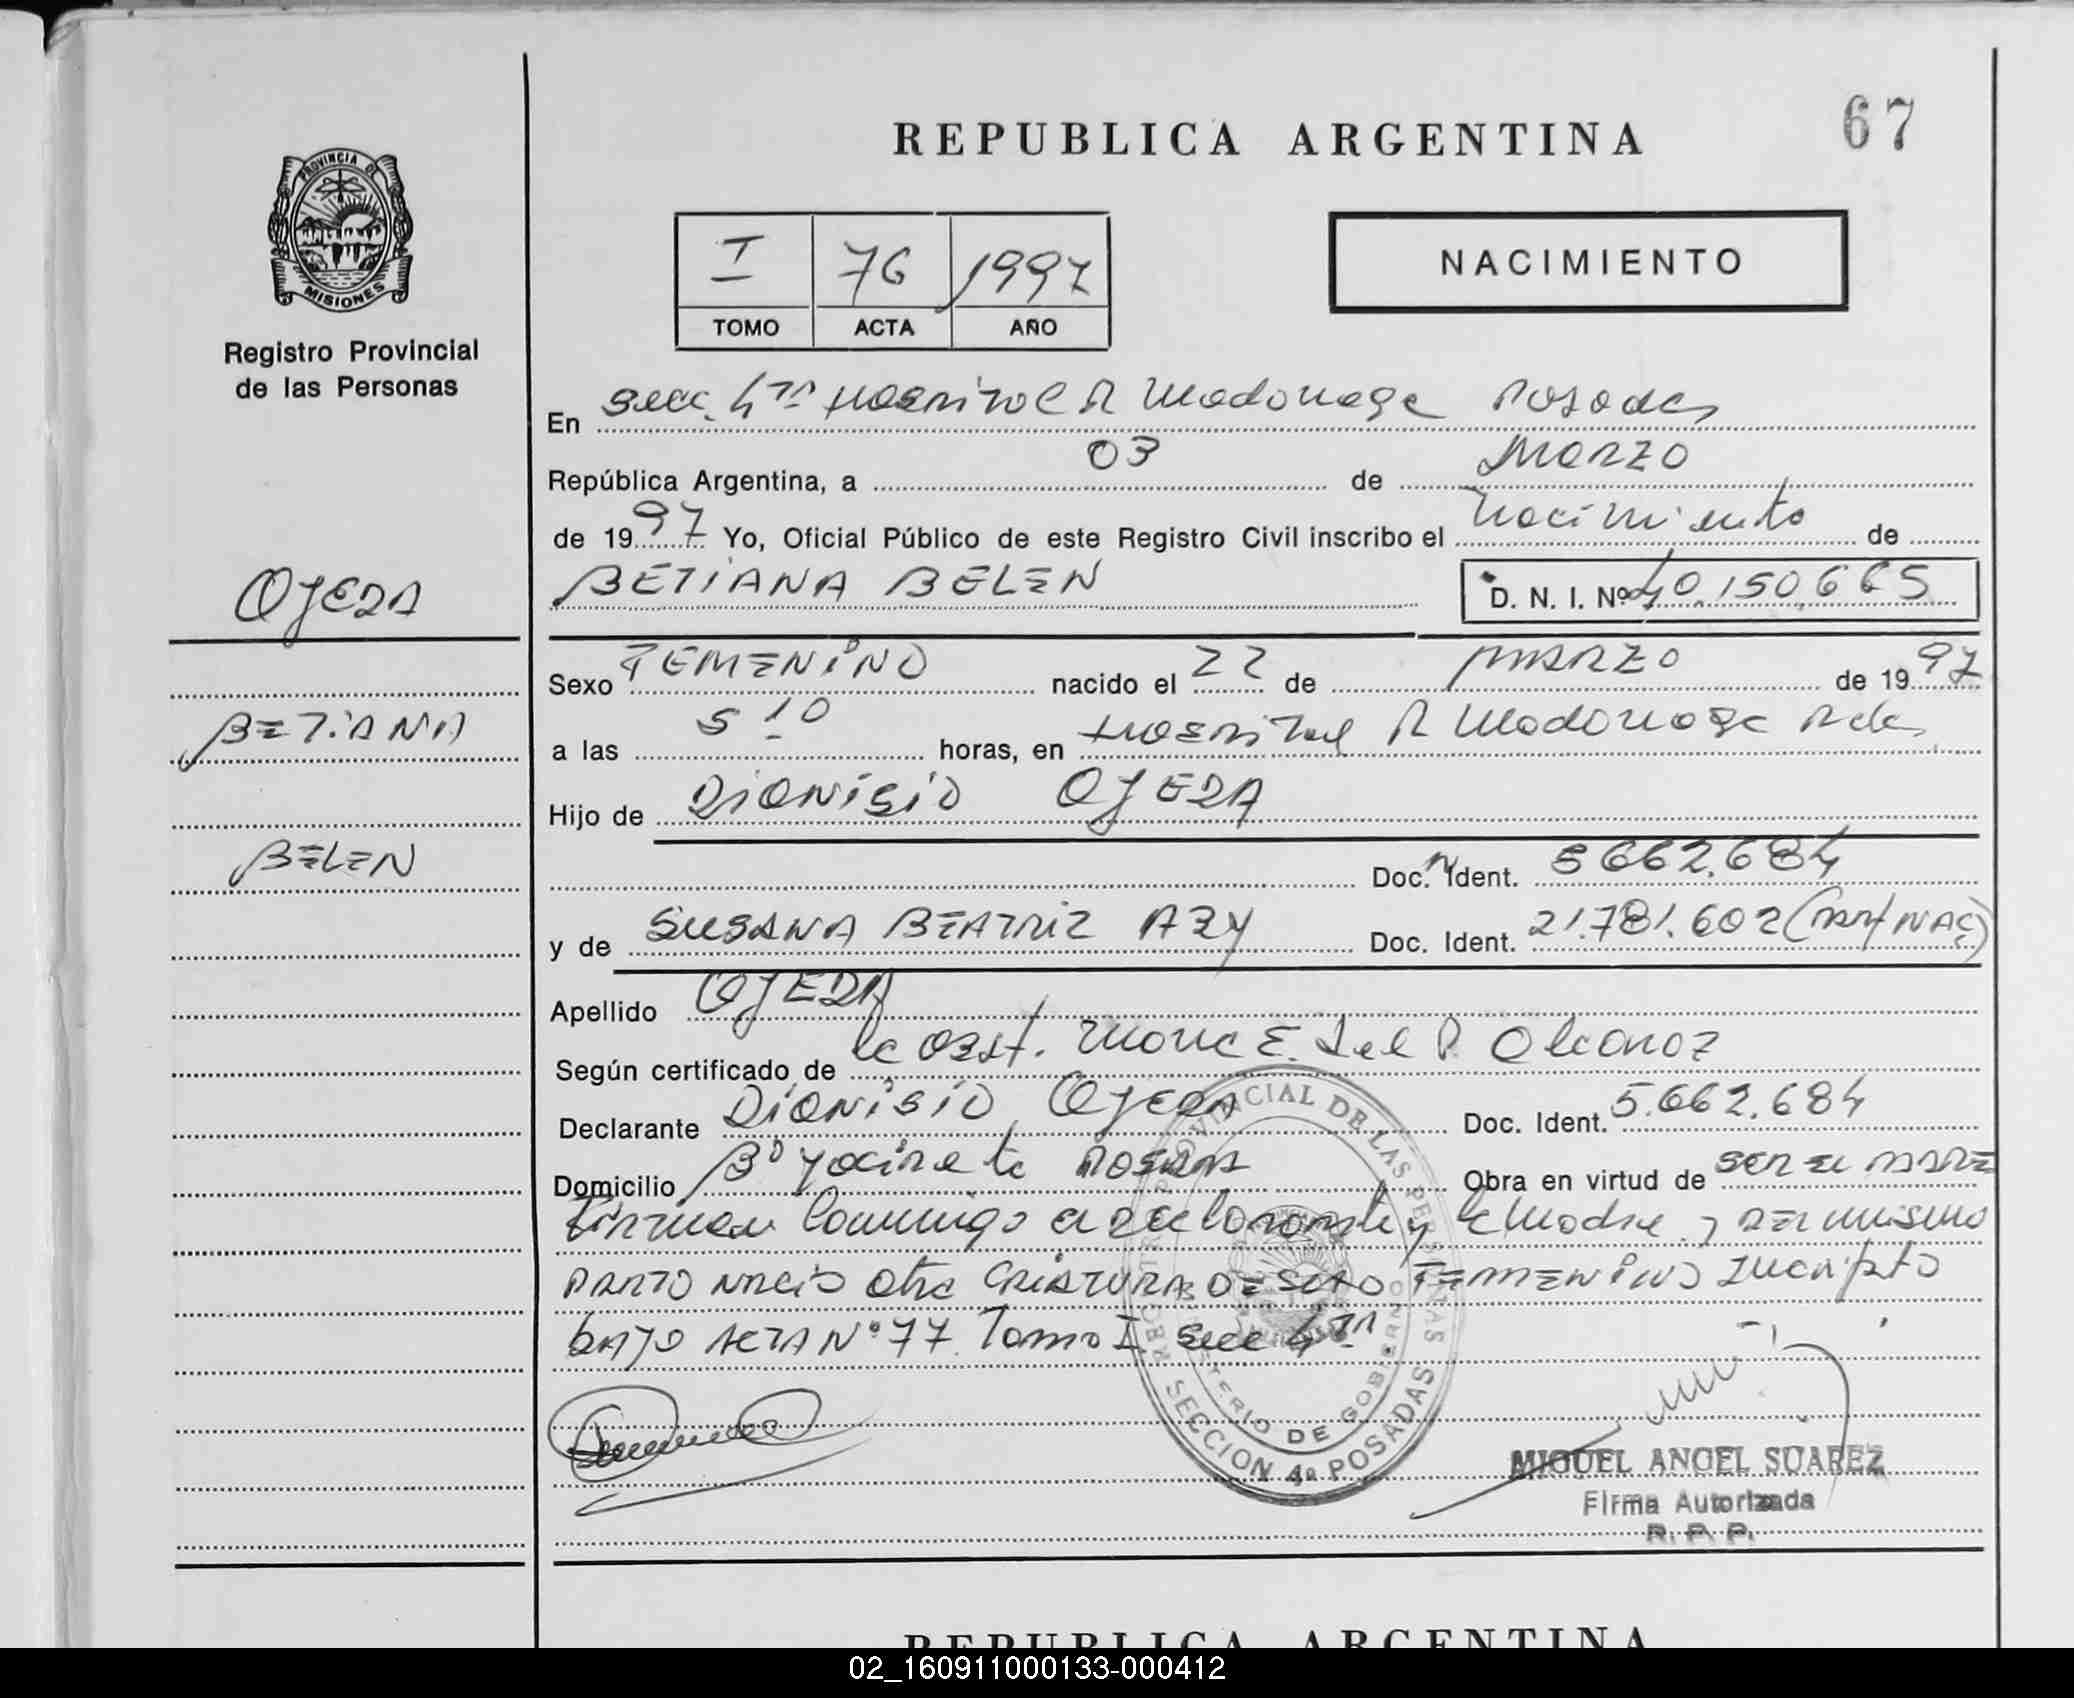 67
REPUBLICA ARGENTINA
PROVINCIA DE
MISIONES
Registro Provincial
de las Personas
I 76 1997
TOMO ACTA AÑO
NACIMIENTO
En Secc. 4ta Hospital R Madariaga Posadas
República Argentina, a 03 de Marzo
de 1997 Yo, Oficial Público de este Registro Civil inscribo el nacimiento de
OJEDA
BETIANA BELEN D. N. I. Nº 40.150.665
Sexo FEMENINO nacido el 22 de MARZO de 1997
BETIANA
a las 5 10 horas, en Hospital R Madariaga Pdas
Hijo de DIONISIO OJEDA
BELEN
Doc. Ident. 5662.684
y de SUSANA BEATRIZ AZY Doc. Ident. 21.781.602 (NAC)
Apellido OJEDA
Según certificado de la Obst. E. del P.
Declarante DIONISIO OJEDA Doc. Ident. 5.662.684
Domicilio Bº Yacireta POSADAS Obra en virtud de SER EL PADRE
Firman Conmigo el declarante y la Madre, DEL mismo
PARTO NACIO otra CRIATURA DE SEXO FEMENINO Inscripto
BAJO ACTA Nº 77 Tomo I Secc 4TA
REGISTRO PROVINCIAL DE LAS PERSONAS
MINISTERIO DE GOBIERNO
SECCION 4a POSADAS
MIGUEL ANGEL SUAREZ
Firma Autorizada
R. P. P.
REPUBLICA ARGENTINA
02_160911000133-000412